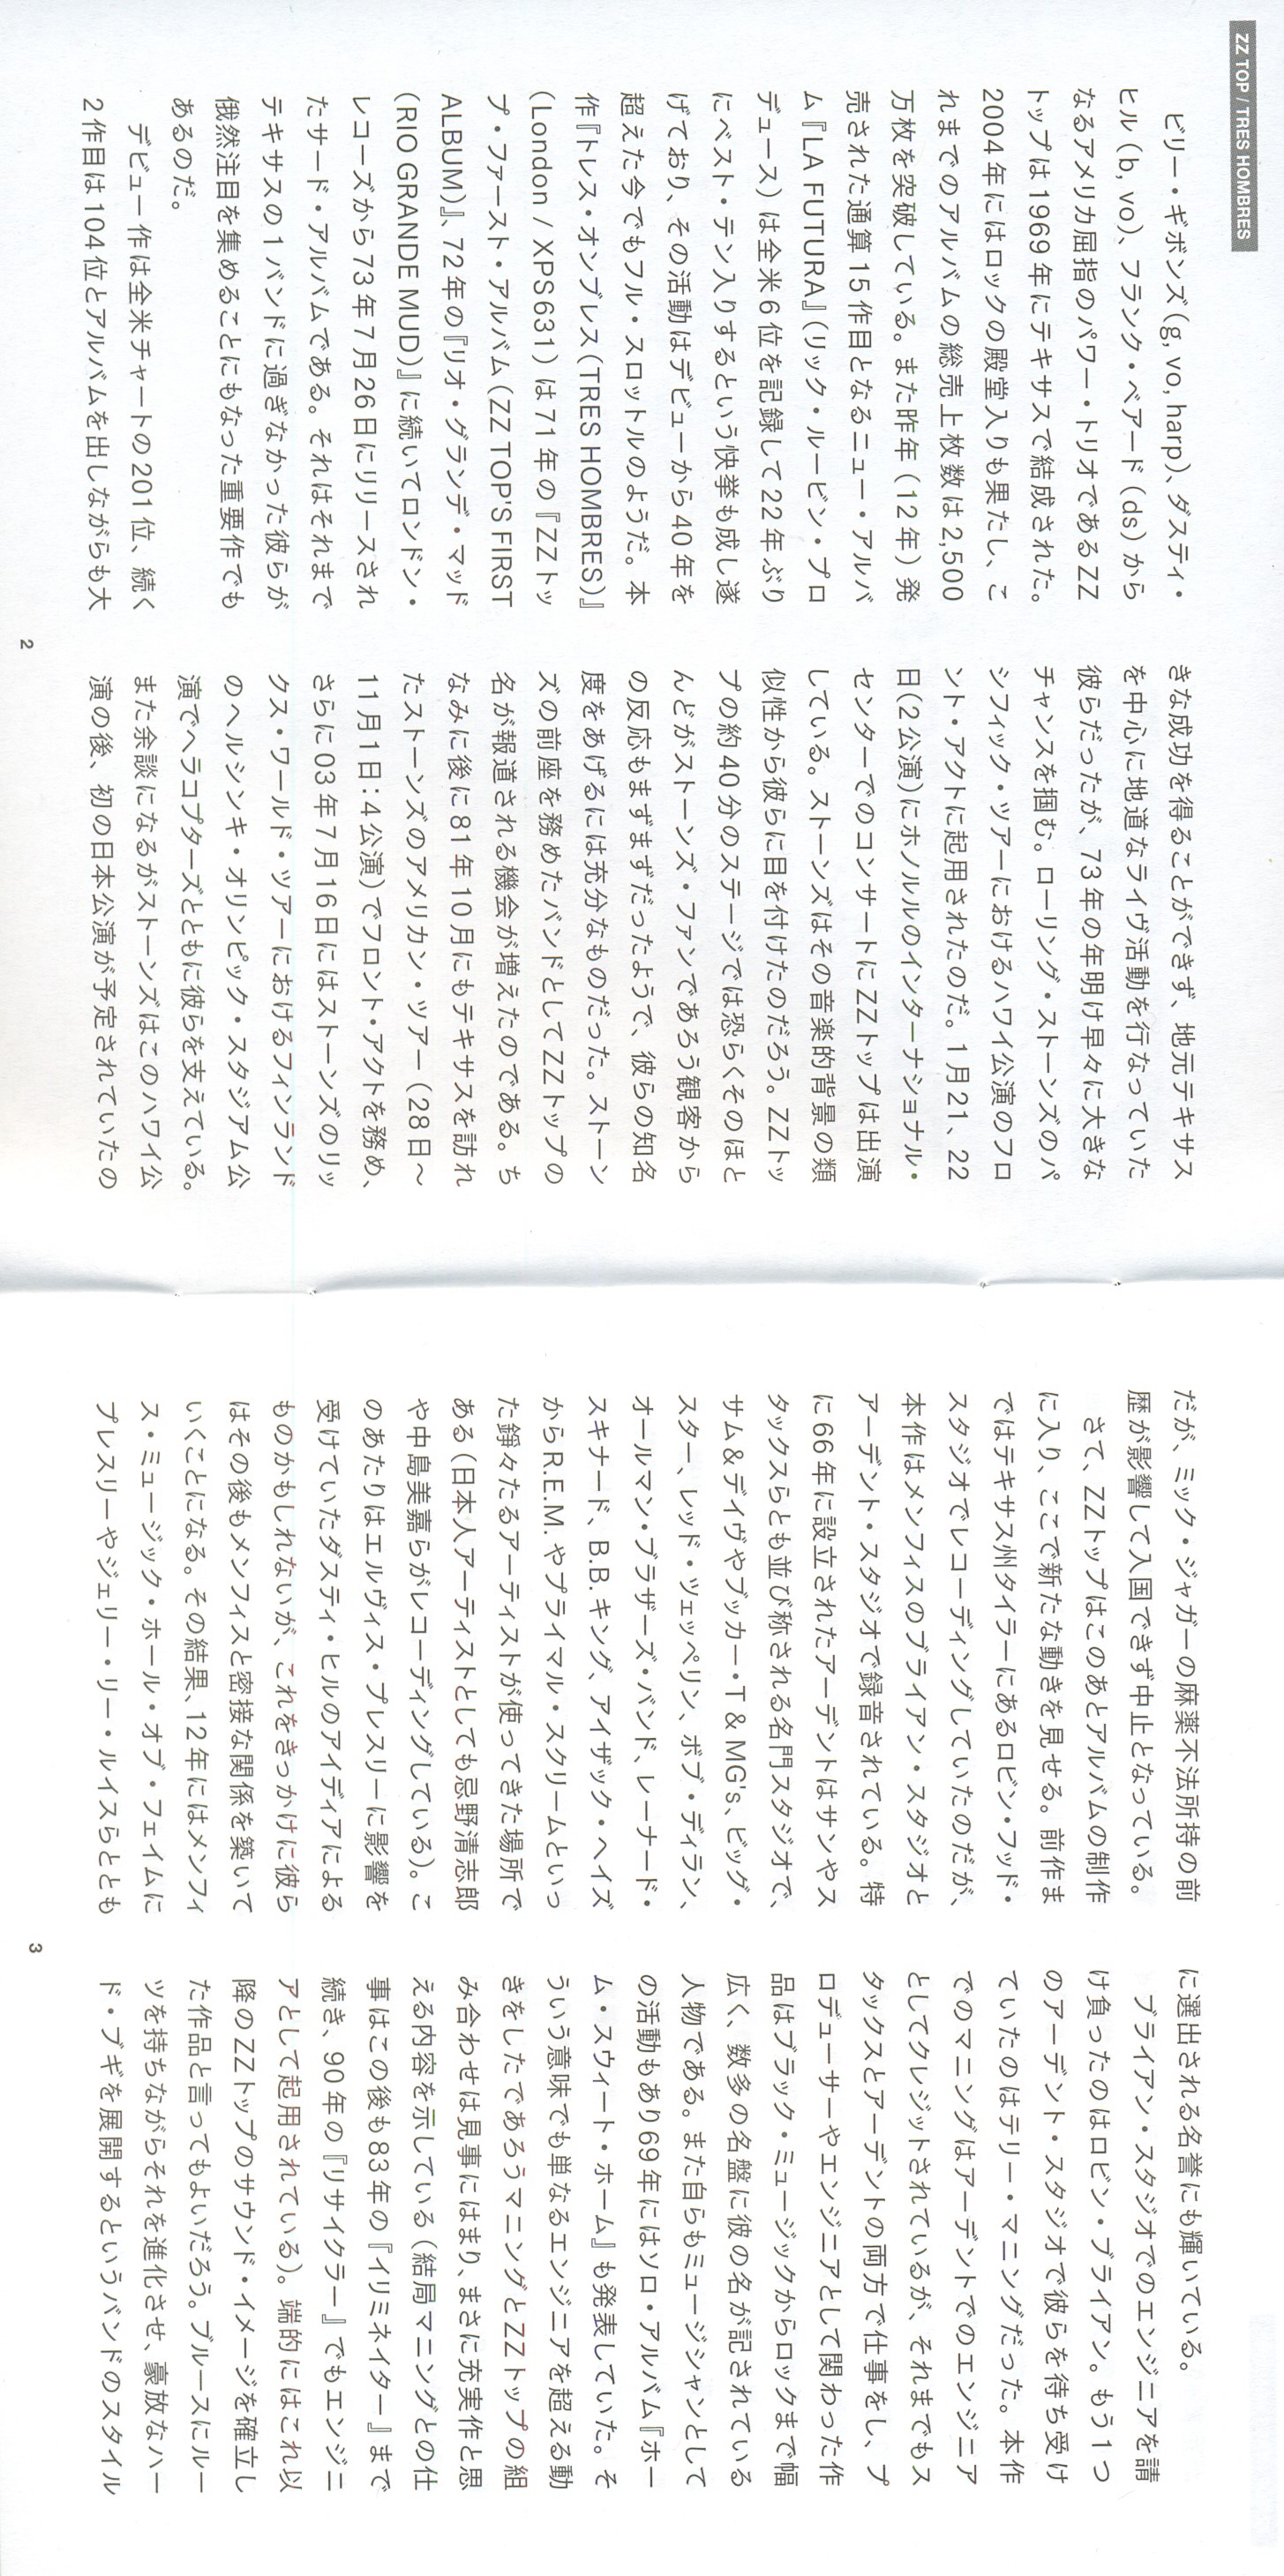 ZZ TOP / TRES HOMBRES
ビリー・ギボンズ(g, vo, harp)、ダスティ・
ヒル(b, vo)、フランク・ベアード(ds)から
なるアメリカ屈指のパワー・トリオであるZZ
トップは1969年にテキサスで結成された。
2004年にはロックの殿堂入りも果たし、こ
れまでのアルバムの総売上枚数は2,500
万枚を突破している。また昨年(12年)発
売された通算15作目となるニュー・アルバ
ム『LA FUTURA』(リック・ルービン・プロ
デュース)は全米6位を記録して22年ぶり
にベスト・テン入りするという快挙も成し遂
げており、その活動はデビューから40年を
超えた今でもフル・スロットルのようだ。本
作『トレス・オンブレス(TRES HOMBRES)』
(London / XPS631)は71年の『ZZトッ
プ・ファースト・アルバム(ZZ TOP'S FIRST
ALBUM)』、72年の『リオ・グランデ・マッド
(RIO GRANDE MUD)』に続いてロンドン・
レコーズから73年7月26日にリリースされ
たサード・アルバムである。それはそれまで
テキサスの1バンドに過ぎなかった彼らが
俄然注目を集めることにもなった重要作でも
あるのだ。
デビュー作は全米チャートの201位、続く
2作目は104位とアルバムを出しながらも大
きな成功を得ることができず、地元テキサス
を中心に地道なライヴ活動を行なっていた
彼らだったが、73年の年明け早々に大きな
チャンスを掴む。ローリング・ストーンズのパ
シフィック・ツアーにおけるハワイ公演のフロ
ント・アクトに起用されたのだ。1月21、22
日(2公演)にホノルルのインターナショナル・
センターでのコンサートにZZトップは出演
している。ストーンズはその音楽的背景の類
似性から彼らに目を付けたのだろう。ZZトッ
プの約40分のステージでは恐らくそのほと
んどがストーンズ・ファンであろう観客から
の反応もまずまずだったようで、彼らの知名
度をあげるには充分なものだった。ストーン
ズの前座を務めたバンドとしてZZトップの
名が報道される機会が増えたのである。ち
なみに後に81年10月にもテキサスを訪れ
たストーンズのアメリカン・ツアー(28日〜
11月1日：4公演)でフロント・アクトを務め、
さらに03年7月16日にはストーンズのリッ
クス・ワールド・ツアーにおけるフィンランド
のヘルシンキ・オリンピック・スタジアム公
演でヘラコプターズとともに彼らを支えている。
また余談になるがストーンズはこのハワイ公
演の後、初の日本公演が予定されていたの
2
だが、ミック・ジャガーの麻薬不法所持の前
歴が影響して入国できず中止となっている。
さて、ZZトップはこのあとアルバムの制作
に入り、ここで新たな動きを見せる。前作ま
ではテキサス州タイラーにあるロビン・フッド・
スタジオでレコーディングしていたのだが、
本作はメンフィスのブライアン・スタジオと
アーデント・スタジオで録音されている。特
に66年に設立されたアーデントはサンやス
タックスらとも並び称される名門スタジオで、
サム&デイヴやブッカー・T & MG's、ビッグ・
スター、レッド・ツェッペリン、ボブ・ディラン、
オールマン・ブラザーズ・バンド、レーナード・
スキナード、B.B.キング、アイザック・ヘイズ
からR.E.M.やプライマル・スクリームといっ
た錚々たるアーティストが使ってきた場所で
ある(日本人アーティストとしても忌野清志郎
や中島美嘉らがレコーディングしている)。こ
のあたりはエルヴィス・プレスリーに影響を
受けていたダスティ・ヒルのアイディアによる
ものかもしれないが、これをきっかけに彼ら
はその後もメンフィスと密接な関係を築いて
いくことになる。その結果、12年にはメンフィ
ス・ミュージック・ホール・オブ・フェイムに
プレスリーやジェリー・リー・ルイスらととも
に選出される名誉にも輝いている。
ブライアン・スタジオでのエンジニアを請
け負ったのはロビン・ブライアン。もう1つ
のアーデント・スタジオで彼らを待ち受け
ていたのはテリー・マニングだった。本作
でのマニングはアーデントでのエンジニア
としてクレジットされているが、それまでもス
タックスとアーデントの両方で仕事をし、プ
ロデューサーやエンジニアとして関わった作
品はブラック・ミュージックからロックまで幅
広く、数多の名盤に彼の名が記されている
人物である。また自らもミュージシャンとして
の活動もあり69年にはソロ・アルバム『ホー
ム・スウィート・ホーム』も発表していた。そ
ういう意味でも単なるエンジニアを超える動
きをしたであろうマニングとZZトップの組
み合わせは見事にはまり、まさに充実作と思
える内容を示している(結局マニングとの仕
事はこの後も83年の『イリミネイター』まで
続き、90年の『リサイクラー』でもエンジニ
アとして起用されている)。端的にはこれ以
降のZZトップのサウンド・イメージを確立し
た作品と言ってもよいだろう。ブルースにルー
ツを持ちながらそれを進化させ、豪放なハー
ド・ブギを展開するというバンドのスタイル
3